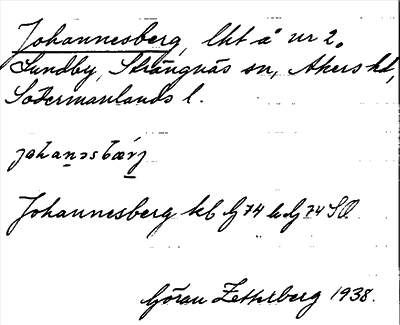 Johannesberg, lht å nr 2,
Sundby, Strängnäs sn, Åkers hd,
Södermanlands l.
johanəsbærj
Johannesberg kb Gj 74 SO
Göran Zetterberg 1938.